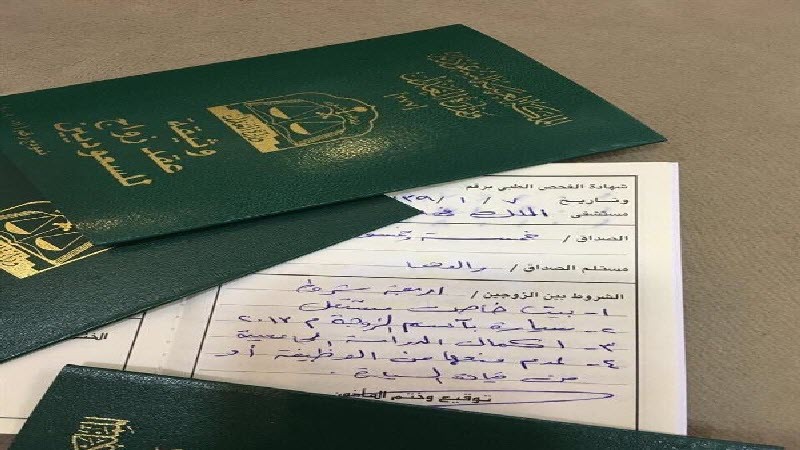 المملكة العربية السعودية
وزارة العدل
وزارة العدل
وثيقة
عقد زواج
للسعوديين
شهادة الفحص الطبي برقم
وتاريخ ٧ / ١ / ١٤٣٩
مستشفى الملك
الصداق / خمسة
مستلم الصداق / والدها
الشروط بين الزوجين / اربعة شروط
١- بيت خاص مستقل
٢- سيارة بأسم الزوجة م ٢٠١٣
٣- اكمال الدراسة الجامعية
٤- عدم منعها من الوظيفة أو
من قيادة السيارة .
توقيع وختم المأذون